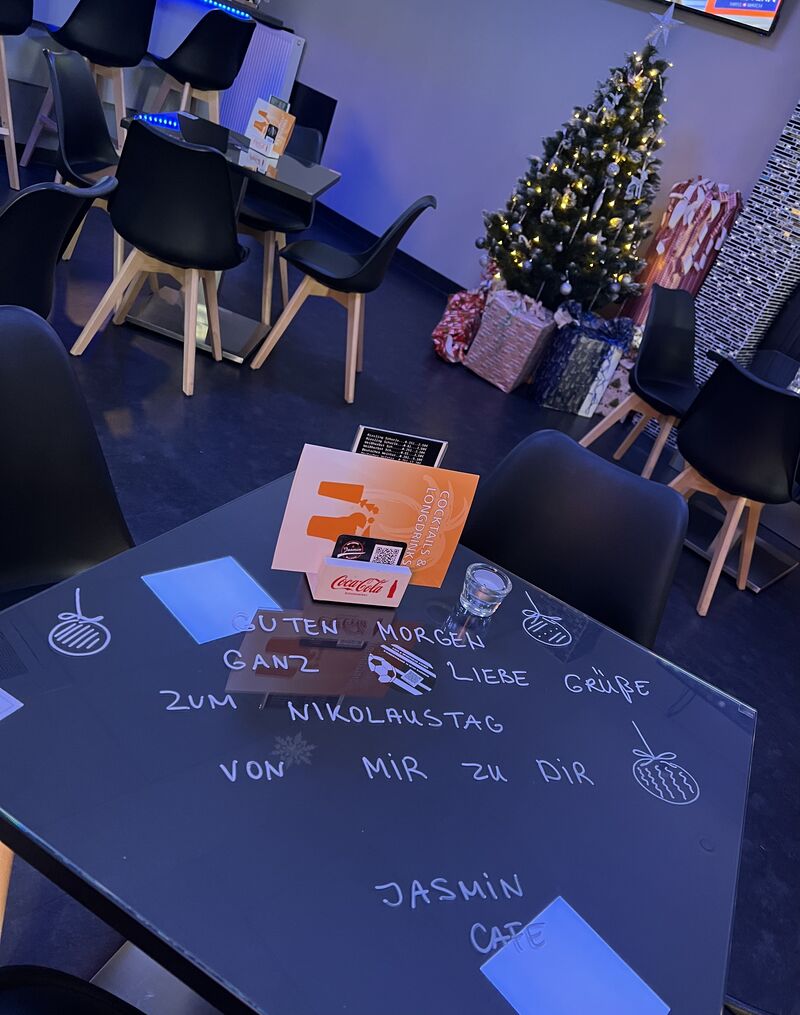 COCKTAILS &
LONGDRINKS
Jasmin
Coca-Cola
GUTEN MORGEN
GANZ LIEBE GRÜßE
ZUM NIKOLAUSTAG
VON MIR ZU DIR
JASMIN
CAFE